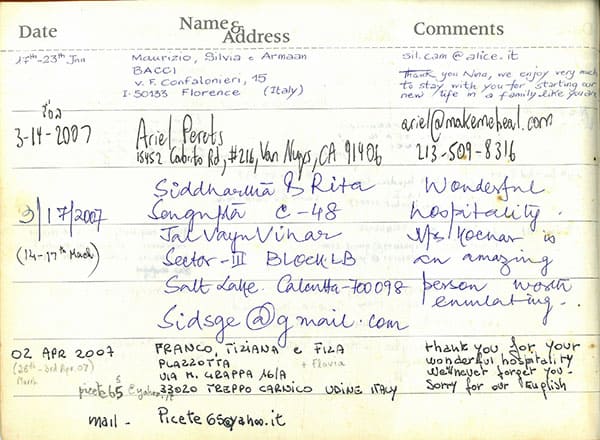 Date Name & Address Comments
17th-23th Jan
Maurizio, Silvia e Armaan
BACCI
v. F. Confalonieri, 15
I-50133 Florence (Italy)
sil.cam@alice.it
Thank you Nina, we enjoy very much
to stay with you for starting our
new life in a family like you are
3-14-2007
Ariel Perets
15452 Cabrito Rd, #216, Van Nuys, CA 91406
ariel@makemeheal.com
213-509-8316
3/17/2007
(14-17th March)
Siddhartha & Rita
Sengupta C-48
Jal Vayu Vihar
Sector-III Block LB
Salt Lake. Calcutta-700098
Sidsge@gmail.com
Wonderful
hospitality.
Ms Kochar is
an amazing
person worth
emulating.
02 APR 2007
(26th-3rd Apr. 07)
March
picete65@yahoo.it
FRANCO, TIZIANA e
PLAZZOTTA + flavia
VIA M. GRAPPA 16/A
33020 TREPPO CARNICO UDINE ITALY
thank you for your
wonderful hospitality
We'll never forget you-
Sorry for our English
mail - Picete65@yahoo.it